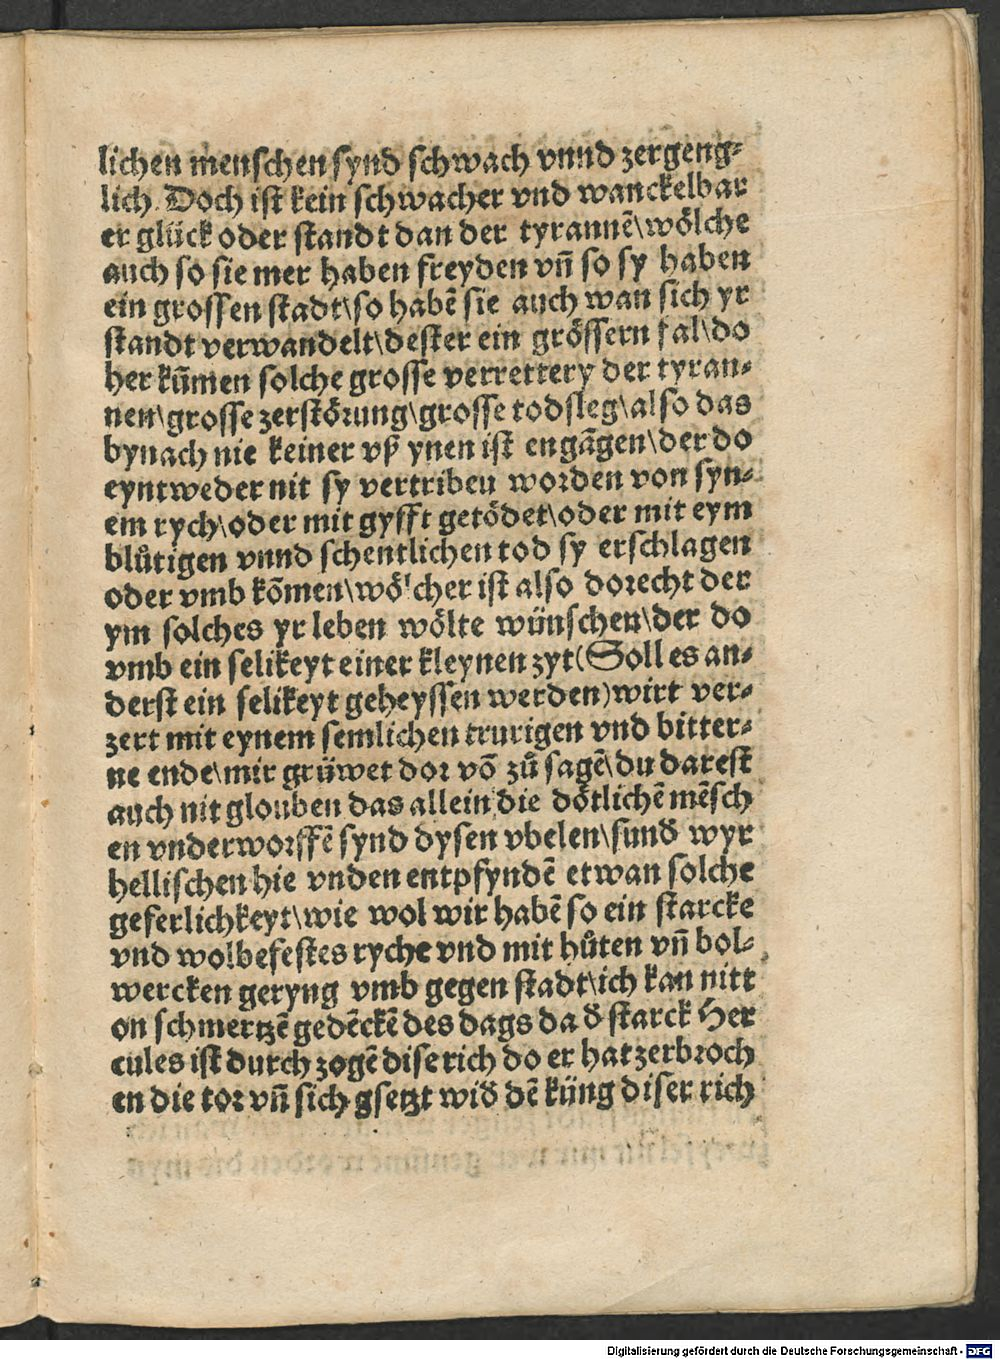 lichen menschen synd schwach vnnd zergeng⸗
lich. Doch ist kein schwacher vnd wanckelbar
er glück oder standt dan der tyrannē\wölche
auch so sie mer haben freyden vñ so sy haben
ein grossen stadt\so habē sie auch wan sich yr
standt verwandelt\dester ein grössern fal\do
her kūmen solche grosse verrettery der tyran⸗
nen\grosse zerstörung\grosse todsleg\also das
bynach nie keiner vß ynen ist engāgen\der do
eyntweder nit sy vertriben worden von syn⸗
em rych\oder mit gyfft getödet\oder mit eym
blůtigen vnnd schentlichen tod sy erschlagen
oder vmb kōmen\wölcher ist also dorecht der
ym solches yr leben wölte wünschen\der do
vmb ein selikeyt einer kleynen zyt(Soll es an⸗
derst ein selikeyt geheyssen werden)wirt ver⸗
zert mit eynem semlichen trurigen vnd bitter⸗
ne ende\mir grüwet dor vō zů sagē\du darest
auch nit glouben das allein die dötlichē mēsch
en vnderworffē synd dysen vbelen\sund̄ wyr
hellischen hie vnden entpfyndē etwan solche
geferlichkeyt\wie wol wir habē so ein starcke
vnd wolbefestes ryche vnd mit hůten vñ bol⸗
wercken geryng vmb gegen stadt\ich kan nitt
on schmertzē gedēckē des dags da d̄ starck Her
cules ist durch zogē dise rich do er hat zerbroch
en die tor vñ sich gsetzt wid̄ dē küng diser rich
Digitalisierung gefördert durch die Deutsche Forschungsgemeinschaft - DFG